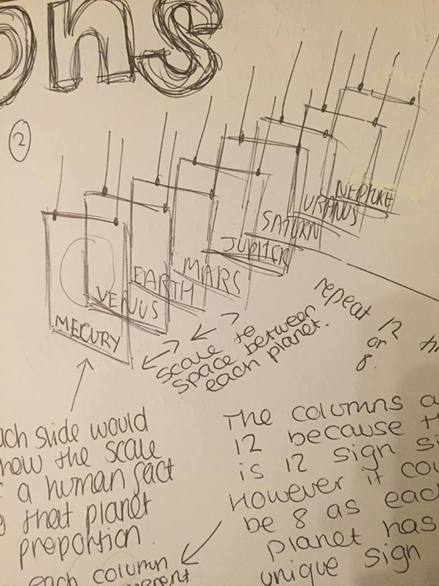 ons
2
NEPTUKE
URANUS
SATURN
JUPITER
MARS
EARTH
VENUS
MECURY
Scale to
space between
each planet.
repeat 12
or
8.
ach slide would
how the scale
a human fact
that planet
preportion.
each column
The columns a
12 because th
is 12 sign si
However it cou
be 8 as each
planet has
unique sign